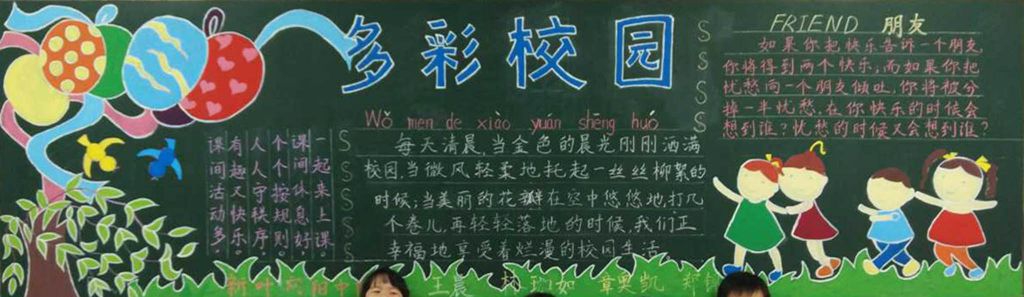 课间活动多
有趣又快乐
人人守秩序
个个按规则
课间休息好
一起来上课
多彩校园
Wǒ men de xiào yuán shēng huó
每天清晨,当金色的晨光刚刚洒满
校园,当微风轻柔地托起一丝丝柳絮的
时候,当美丽的花瓣在空中悠悠地打几
个卷儿,再轻轻落地的时候,我们正
幸福地享受着烂漫的校园生活
FRIEND 朋友
如果你把快乐告诉一个朋友,
你将得到两个快乐;而如果你把
忧愁向一个朋友倾吐,你将被分
掉一半忧愁.在你快乐的时候会
想到谁?忧愁的时候又会想到谁?
王晨